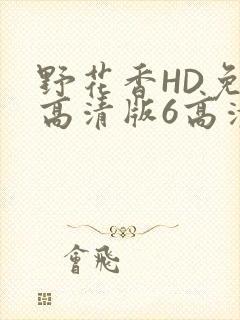 野花香HD免
高清版6高清
會飛